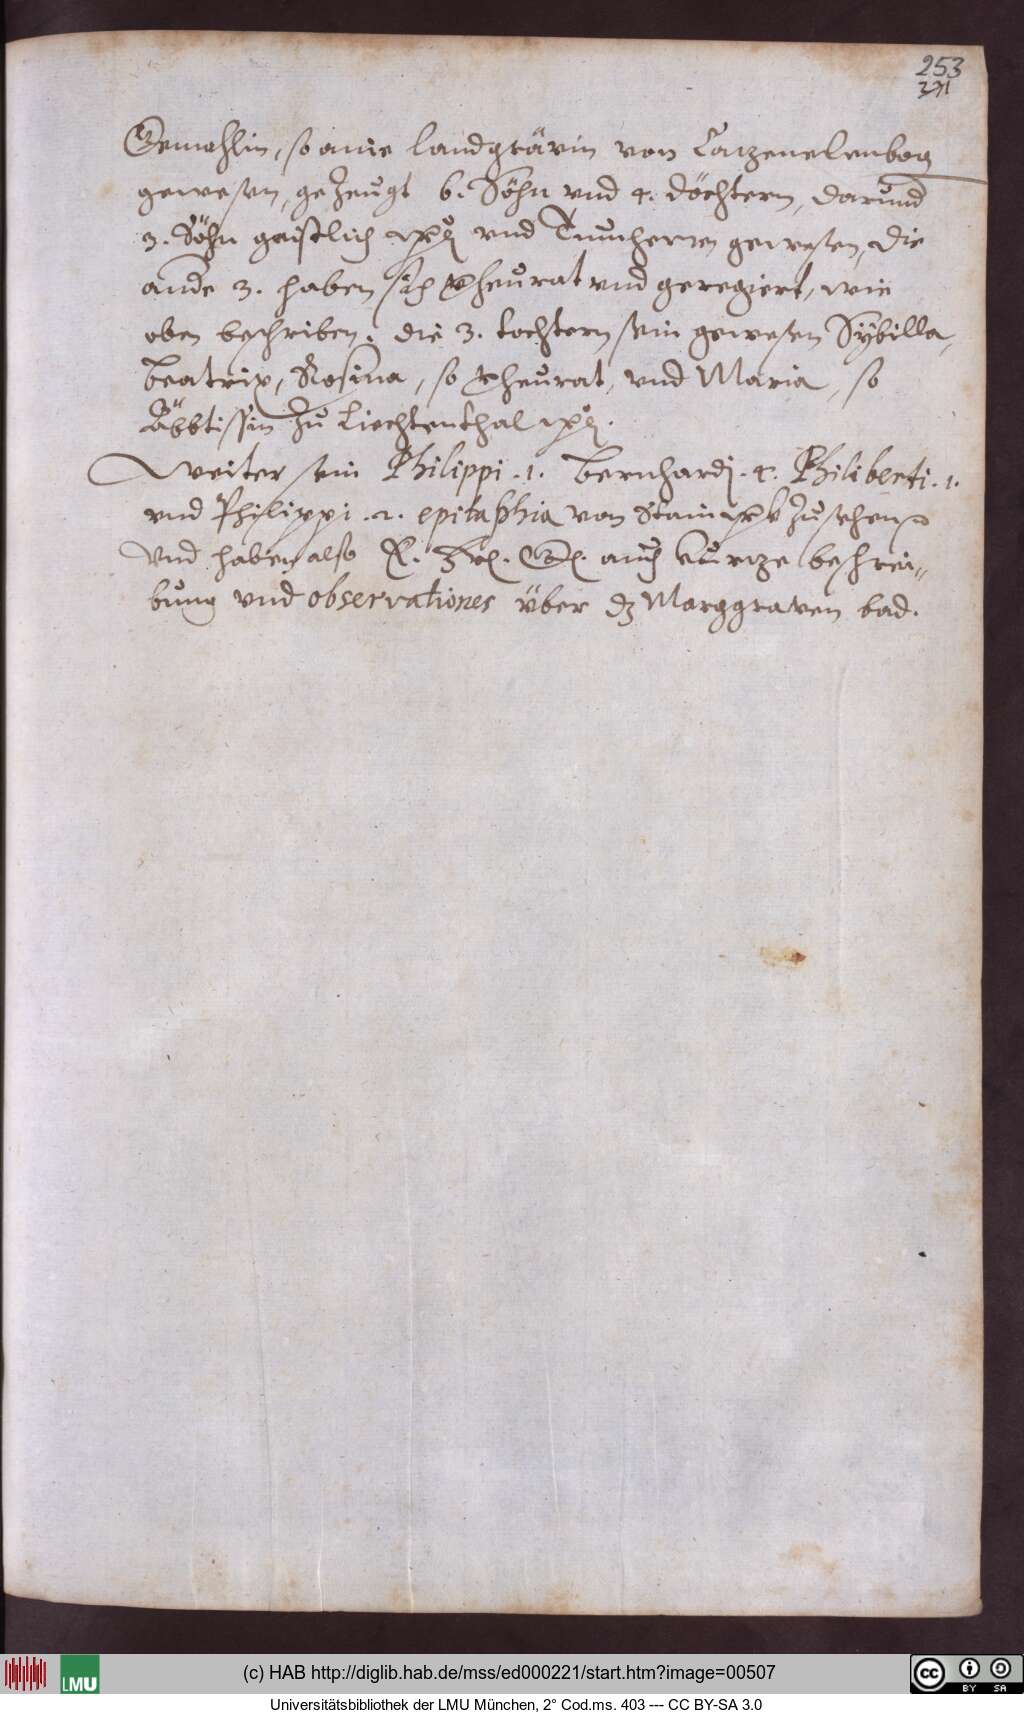 253
371
Gemahlin, so ein landgrävin von Catzenelenbog
gewesen, gezeugt 6. Söhn vnd 4. döchtern, darund
3. Söhn geistlich vnd Tumherren gewesen, die
ande 3. haben sich vheurat vnd geregiert, wie
oben beschriben. die 3. tochtern sein gewesen Sÿbilla,
Beatrix, Rosina, so vheurat, vnd Maria, so
Äbbtissin zu Liechtenthal
Weiter sein Philippi .1. Bernhardj .4. Philiberti .1.
vnd Philippi .2. epitaphia von Stain zusehen
Vnd haben also E. auch kurtze beschrei„
bung vnd observationes über dz Marggraven bad.
(c) HAB http://diglib.hab.de/mss/ed000221/start.htm?image=00507
LMU
cc BY SA
Universitätsbibliothek der LMU München, 2° Cod.ms. 403 --- CC BY-SA 3.0